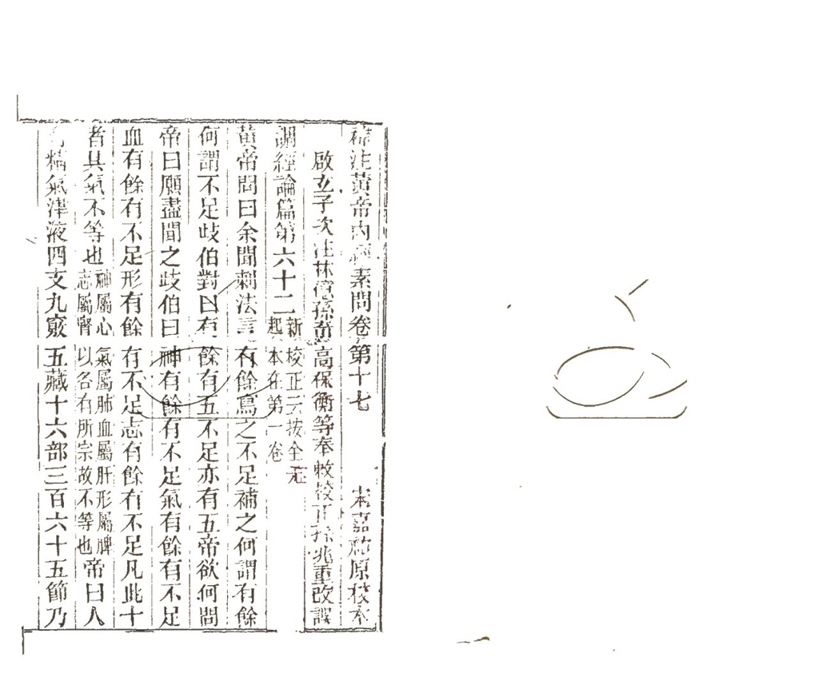 補注黃帝內經素問卷第十七 宋嘉祐原校本
啟玄子次注林億孫奇高保衡等奉敕校正孫兆重改誤
調經論篇第六十二 新校正云按全元起本在第一卷
黃帝問曰余聞刺法言有餘寫之不足補之何謂有餘
何謂不足歧伯對曰有餘有五不足亦有五帝欲何問
帝曰願盡聞之歧伯曰神有餘有不足氣有餘有不足
血有餘有不足形有餘有不足志有餘有不足凡此十
者其氣不等也 神屬心氣屬肺血屬肝形屬脾志屬腎以各有所宗故不等也 帝曰人
有精氣津液四支九竅五藏十六部三百六十五節乃